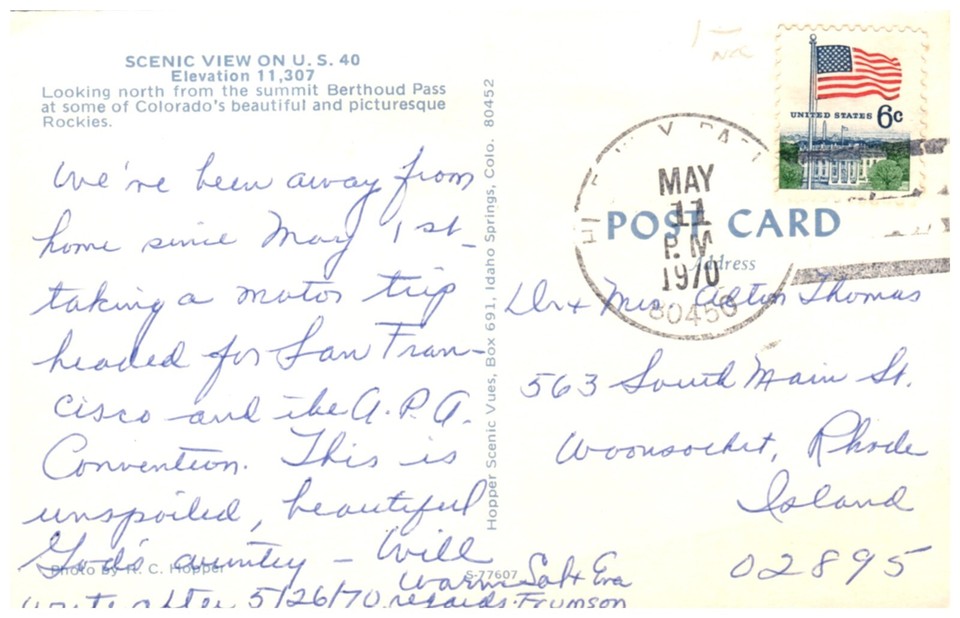 SCENIC VIEW ON U. S. 40
Elevation 11,307
Looking north from the summit Berthoud Pass
at some of Colorado's beautiful and picturesque
Rockies.
We've been away from
home since May 1st-
taking a motor trip
headed for San Fran-
cisco and the A. P. A.
Convention. This is
unspoiled, beautiful
God's country - Will
write after 5/26/70.
Warm
regards.
Sal & Eva
Frumson
Photo by H. C. Hopper
S-77607
Hopper Scenic Vues, Box 691, Idaho Springs, Colo. 80452
1-
UNITED STATES 6c
MAY
11
P.M
1970
POST CARD
Address
Dr & Mrs Alton Thomas
563 South Main St.
Woonsocket, Rhode
Island
02895